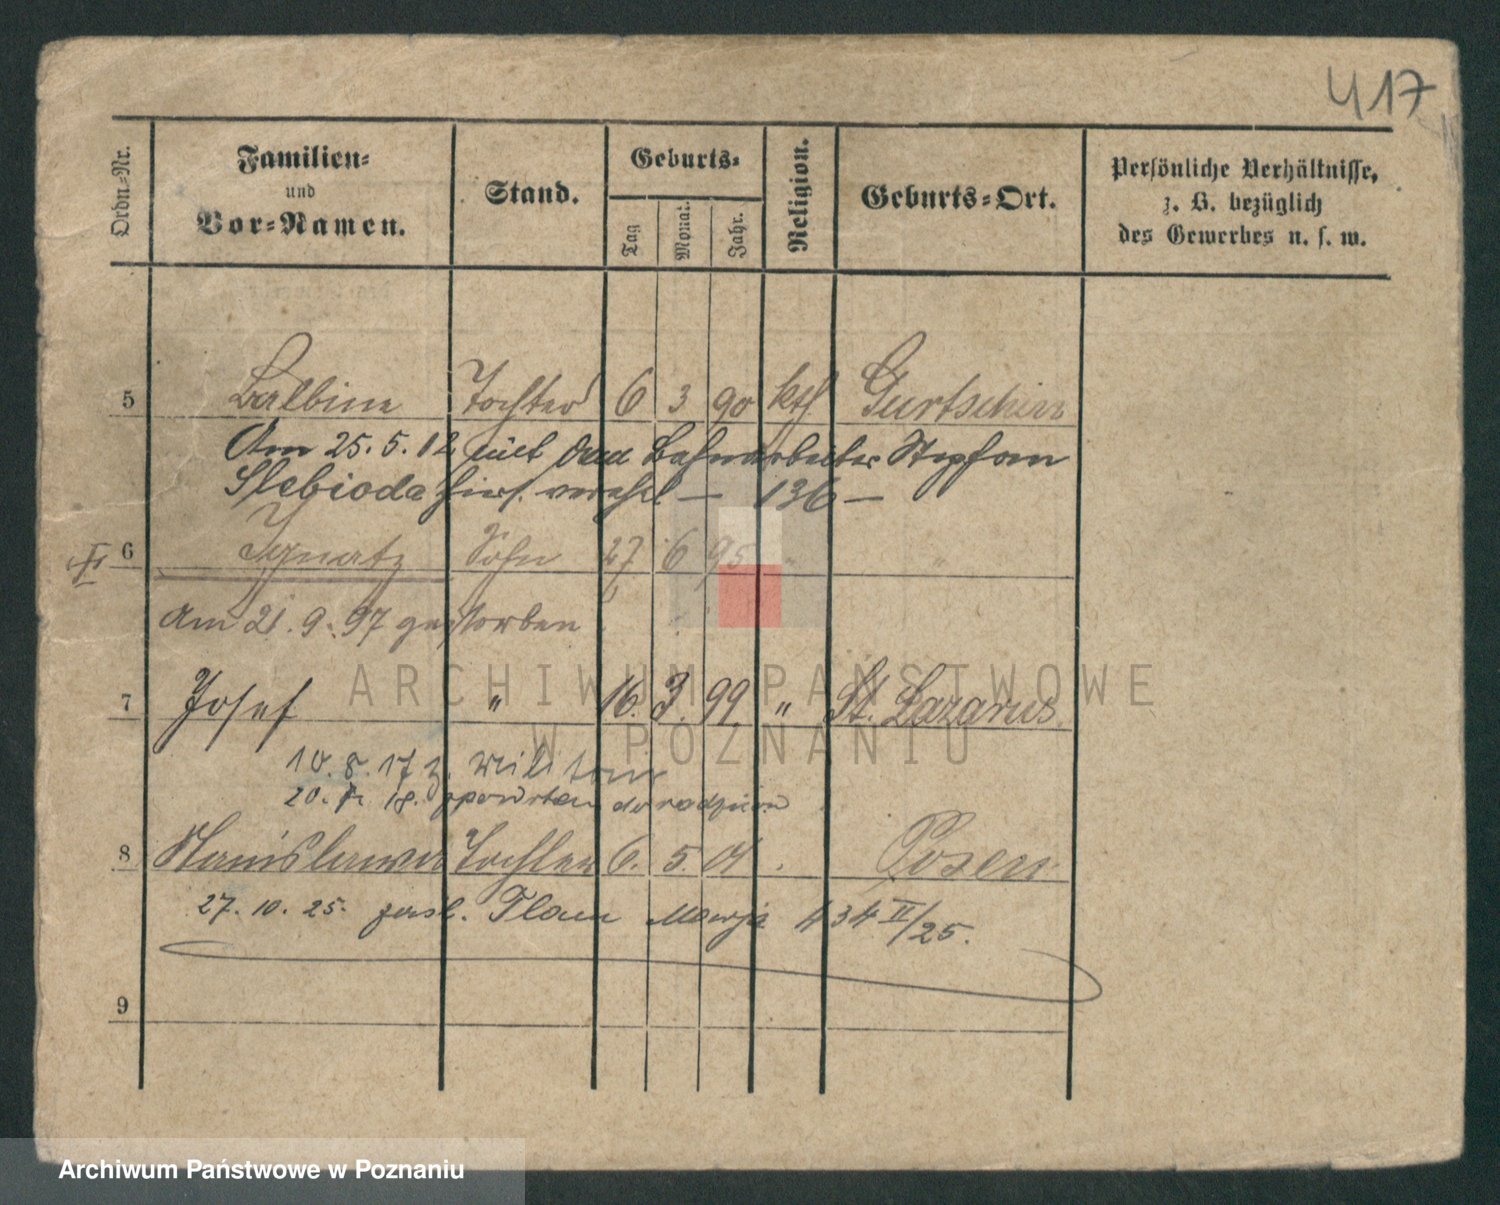 417
Ordn.-Nr.
Familien-
und
Vor-Namen.
Stand.
Geburts-
Tag
Monat.
Jahr.
Religion.
Geburts-Ort.
Persönliche Verhältnisse,
z. B. bezüglich
des Gewerbes u. s. w.
5 Balbine Tochter 6 3 90 kth Gurtschin
Am 25.5.12 mit dem Bahnarbeiter Stephan
Slebioda hier verehel — 136 —
6 Ignatz Sohn 27 6 95 "
Am 21.9.97 gestorben
7 Josef " 16. 3. 99 " St. Lazarus
10.8.17 z. Militair
20. 18. do rodziców
8 Stanislawa Tochter 6. 5. 01 . Posen
27.10.25. zasl. Flam Marja 434 II/25.
9
ARCHIWUM PAŃSTWOWE
W POZNANIU
Archiwum Państwowe w Poznaniu